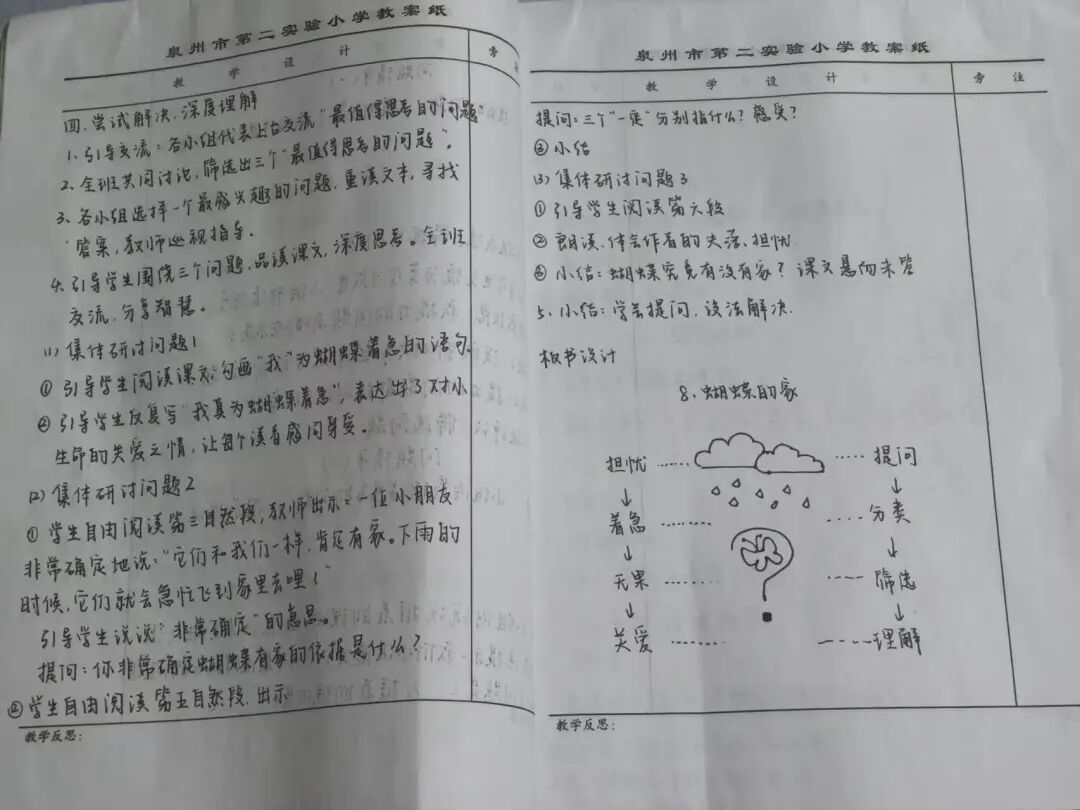 泉州市第二实验小学教案纸
教学设计 旁
四、尝试解决,深度理解
1、引导交流:各小组代表上台交流“最值得思考的问题”
2、全班共同讨论,筛选出三个“最值得思考的问题”。
3、各小组选择一个最感兴趣的问题,重读文本,寻找
答案,教师巡视指导。
4、引导学生围绕三个问题,品读课文,深度思考。全班
交流,分享智慧。
(1)集体研讨问题1
①引导学生阅读课文,勾画“我”为蝴蝶着急的语句。
②引导学生反复写“我真为蝴蝶着急”,表达出了对小
生命的关爱之情,让每个读者感同身受。
(2)集体研讨问题2
①学生自由阅读第三自然段,教师出示:一位小朋友
非常确定地说:“它们和我们一样,肯定有家。下雨的
时候,它们就会急忙飞到家里去哩!”
引导学生说说“非常确定”的意思。
提问:你非常确定蝴蝶有家的依据是什么?
②学生自由阅读第五自然段,出示
教学反思:
泉州市第二实验小学教案纸
教学设计 旁注
提问:三个“一定”分别指什么?感受?
③小结
(3)集体研讨问题3
①引导学生阅读第六段
②朗读,体会作者的失落、担忧.
③小结:蝴蝶究竟有没有家?课文悬而未答
5、小结:学会提问,设法解决.
板书设计
8、蝴蝶的家
担忧 …… …… 提问
↓ ↓
着急 …… …… 分类
↓ ↓
无果 …… …… 筛选
↓ ↓
关爱 …… …… 理解
教学反思: